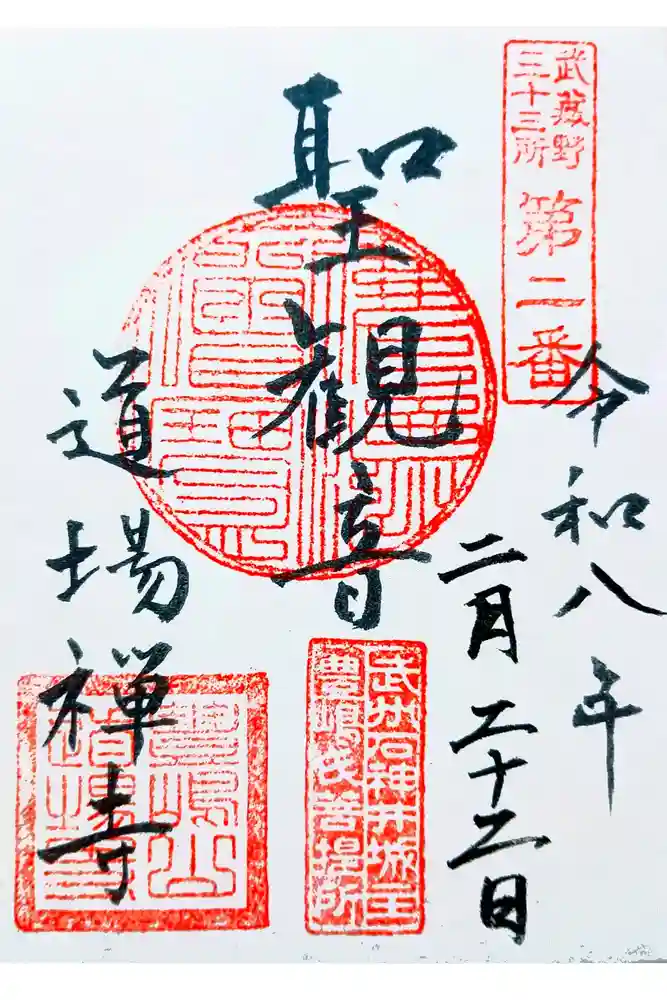 武蔵野
三十三所
第二番
令和八年
二月二十二日
聖観音
武州石神井城主
豊嶋氏菩提所
道場禅寺
豊嶋山
道場寺